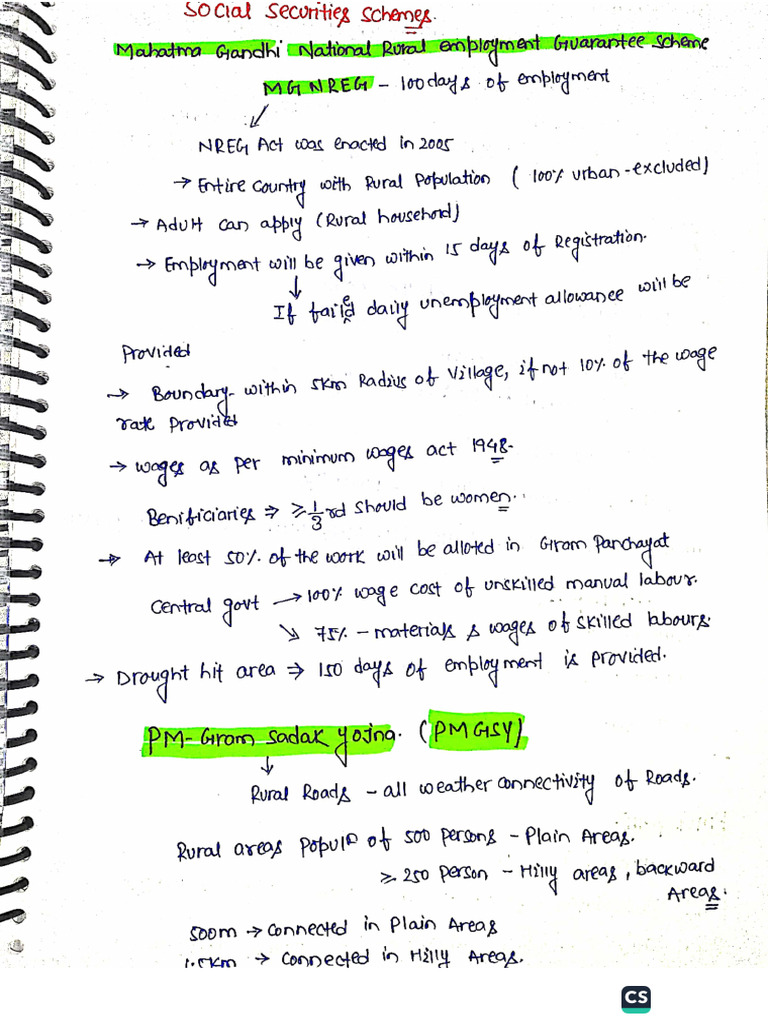 Social Securities Schemes.
Mahatma Gandhi National Rural employment Guarantee scheme
MGNREG - 100 days of employment
NREG Act was enacted in 2005
→ Entire Country with Rural Population ( 100% urban-excluded)
→ Adult can apply (Rural household)
→ Employment will be given within 15 days of Registration.
If failed daily unemployment allowance will be
Provided
→ Boundary - within 5km Radius of Village, if not 10% of the wage
rate Provided
→ wages as per minimum wages act 1948.
Benificiaries ⇒ ≥ 1/3 rd should be women.
→ At least 50% of the work will be alloted in Gram Panchayat
Central govt → 100% wage cost of unskilled manual labour.
↘ 75% - materials & wages of skilled labours.
→ Drought hit area ⇒ 150 days of employment is provided.
PM-Gram Sadak yojna. (PMGSY)
Rural Roads - all weather connectivity of Roads.
Rural areas Populn of 500 persons - Plain Areas.
≥ 250 person - Hilly areas, backward
Areas.
500m → Connected in Plain Areas
1.5km → Connected in Hilly Areas.
CS